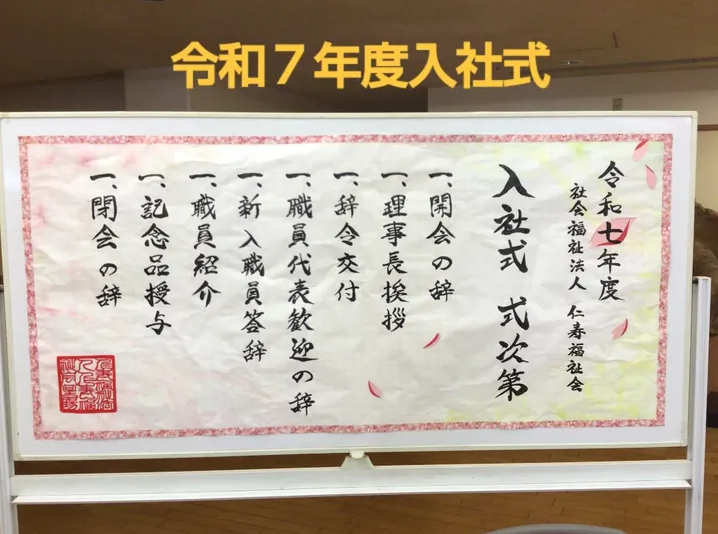 令和７年度入社式
令和七年度
社会福祉法人 仁寿福祉会
入社式 式次第
一、開会の辞
一、理事長挨拶
一、辞令交付
一、職員代表歓迎の辞
一、新入職員答辞
一、職員紹介
一、記念品授与
一、閉会の辞